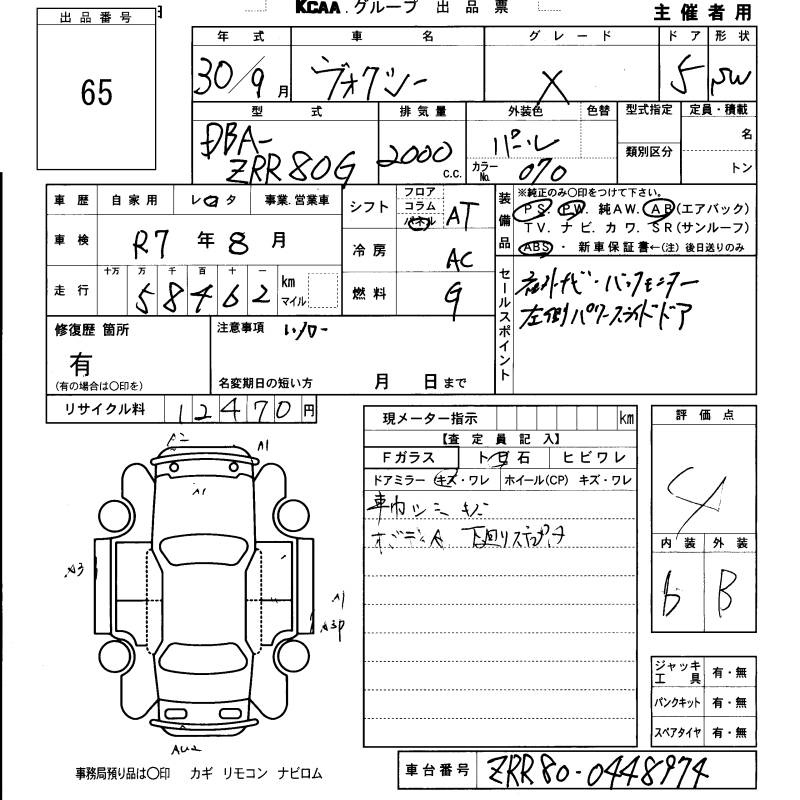 KCAA グループ 出品票
主催者用
出品番号
65
年式 車名 グレード ドア 形状
30/9月 ヴォクシー X 5 SW
型式 排気量 外装色 色替 型式指定 定員・積載
DBA-ZRR80G 2000c.c. パール 類別区分 名
カラーNo. 070 トン
車歴 自家用 レンタ 事業.営業車
車検 R7年8月
走行 十万 万 千 百 十 一
58462 km マイル
シフト フロア コラム パネル AT
冷房 AC
燃料 G
装備品 ※純正のみ〇印をつけて下さい。
PS. PW. 純AW. AB(エアバック)
TV. ナビ. カワ. SR(サンルーフ)
ABS・新車保証書←(注)後日送りのみ
セールスポイント
左側パワースライドドア
修復歴 箇所
有
(有の場合は〇印を)
注意事項
名変期日の短い方 月 日まで
リサイクル料 12470円
現メーター指示 km
【査定員記入】
Fガラス ト石 ヒビワレ
ドアミラー キズ・ワレ ホイール(CP) キズ・ワレ
評価点
4
内装 外装
b B
A2 A1
A1
A3
A1
A3P
AU2
ジャッキ工具 有・無
パンクキット 有・無
スペアタイヤ 有・無
事務局預り品は〇印 カギ リモコン ナビロム
車台番号 ZRR80-0448974